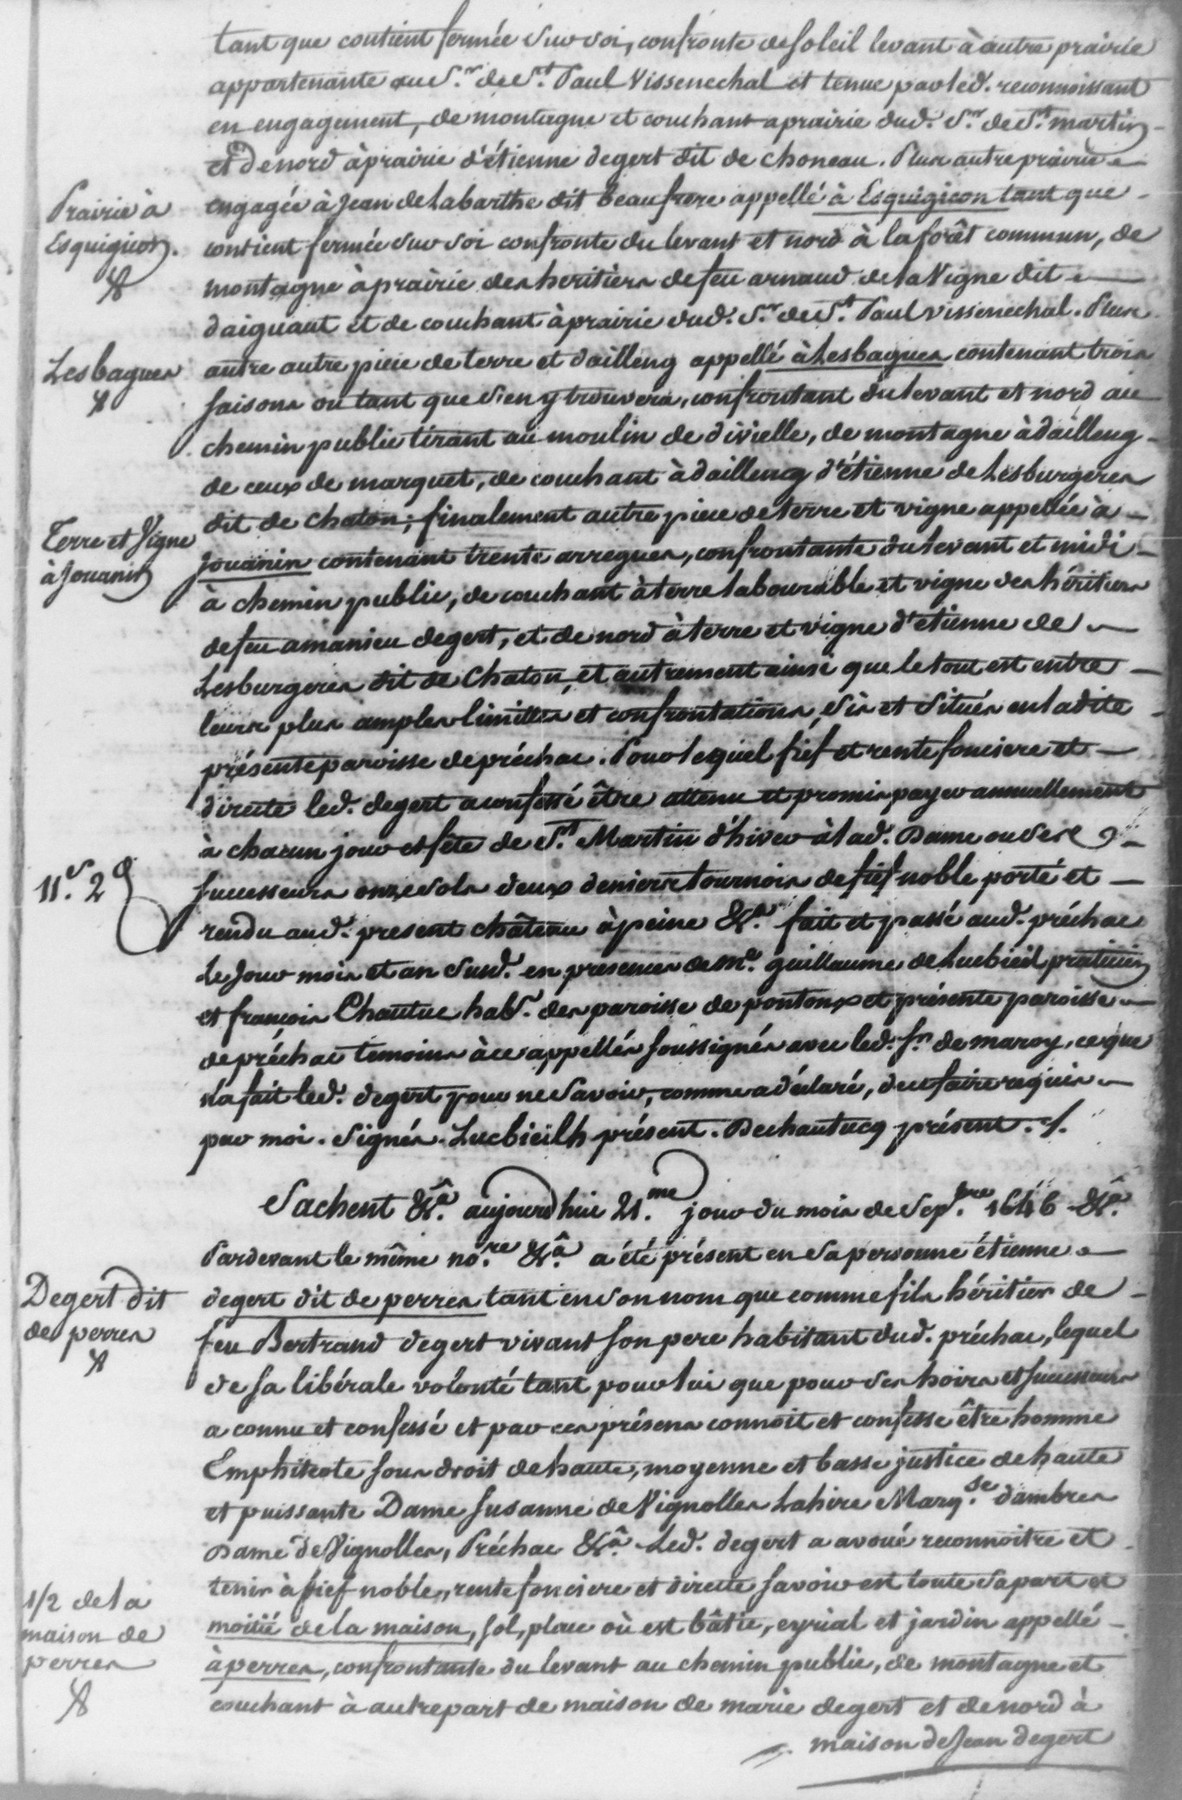 tant que contient fermée sur soi, confronte de soleil levant à autre prairie
appartenante au S.r de S.t Paul Vissenechal et tenue par led. reconnoissant
en engagement, de montagne et couchant a prairie dud. S.r de S.t martin
et de nord à prairie d'étienne degert dit de choneau. Plus autre prairie
Prairie à
Esquigicon.
engagée à Jean de Labarthe dit beaufrere appellé à Esquigicon tant que
contient fermée sur soi confronte du levant et nord à la forêt commun, de
montagne à prairie des heritiers de feu arnaud de la Vigne dit
daiguaut et de couchant à prairie dud. S.r de S.t Paul vissenechal. Plus
Lesbagues
autre autre piece de terre et dailleng appellé à Lesbagues contenant trois
saisons ou tant que s'en y trouvera, confrontant du levant et nord au
chemin public tirant au moulin de divielle, de montagne à dailleng
de ceux de marquet, de couchant à dailleng d'étienne de Lesburgeres
Terre et Vigne
à Jouanin
dit de chaton; finalement autre piece de terre et vigne appellée à
Jouanin contenant trente arregues, confrontante du levant et midi
à chemin public, de couchant à terre labourable et vigne des héritiers
de feu amanieu degert, et de nord à terre et vigne d'etienne de
Lesburgeres dit de Chaton, et autrement ainsi que le tout est entre
leurs plus amples limittes et confrontations, sis et situés en ladite
présente paroisse de préchac. Pour lequel fief et rente fonciere et
directe led. degert a confessé être attenu et promis payer annuellement
à chacun jour et fête de S.t Martin d'hiver à lad. Dame ou ses
11.s 2 d
successeurs onze sols deux deniers tournois de fief noble porté et
rendu aud. present château à peine &a. fait et passé aud. préchac
Le jour mois et an susd. en presences de M.e guillaume de Lucbieil praticien
et françois Chautuc hab.s des paroisse de pontonx et présente paroisse
de préchac temoins à ce appellés soussignés avec led. S.r de maroy, ce que
n'a fait led. degert pour ne savoir, comme a déclaré, de ce faire requis
par moi. Signés. Lucbieilh présent. Dechautucq présent. /.
Sachent &a. aujourd'hui 21.me jour du mois de Sep.bre 1646 &a.
Pardevant le même no.re &a. a été présent en sa personne étienne
Degert dit
de perres
degert dit de perres tant en son nom que comme fils héritier de
feu Bertrand degert vivant son pere habitant dud. préchac, lequel
de sa libérale volonté tant pour lui que pour ses hoirs et successeurs
a connu et confessé et par ces présens connoit et confesse être homme
Emphiteote sous droit de haute, moyenne et basse justice de haute
et puissante Dame Susanne de Vignolles Lahire Marq.se dambres
Dame de Vignolles, Préchac &a. Led. degert a avoué reconnoitre et
tenir à fief noble, rente fonciere et directe savoir est toute sa part et
1/2 de la
maison de
perres
moitié de la maison, sol, place où est bâtie, eyrial et jardin appellé
à perres, confrontante du levant au chemin public, de montagne et
couchant à autre part de maison de marie degert et de nord à
maison de Jean degert